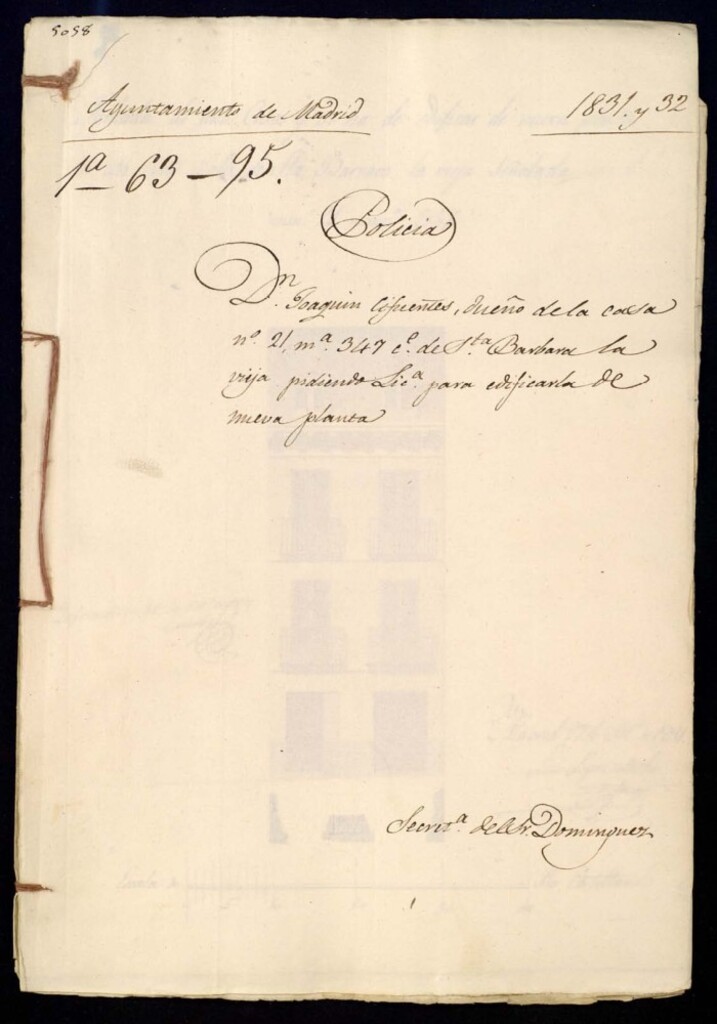 5058
Ayuntamiento de Madrid
1831 y 32
1ª 63-95.
Policia
Dn Joaquin Cifuentes, dueño de la casa
nº. 21, mª. 347 cº. de Sta. Barbara la
vieja pidiendo Licª. para edificarla de
nueva planta
Secretª. del Sr. Dominguez